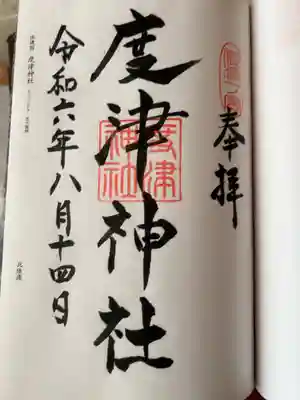 奉拝
度津神社
度津
神社
令和六年八月十四日
度津神社
北陸道